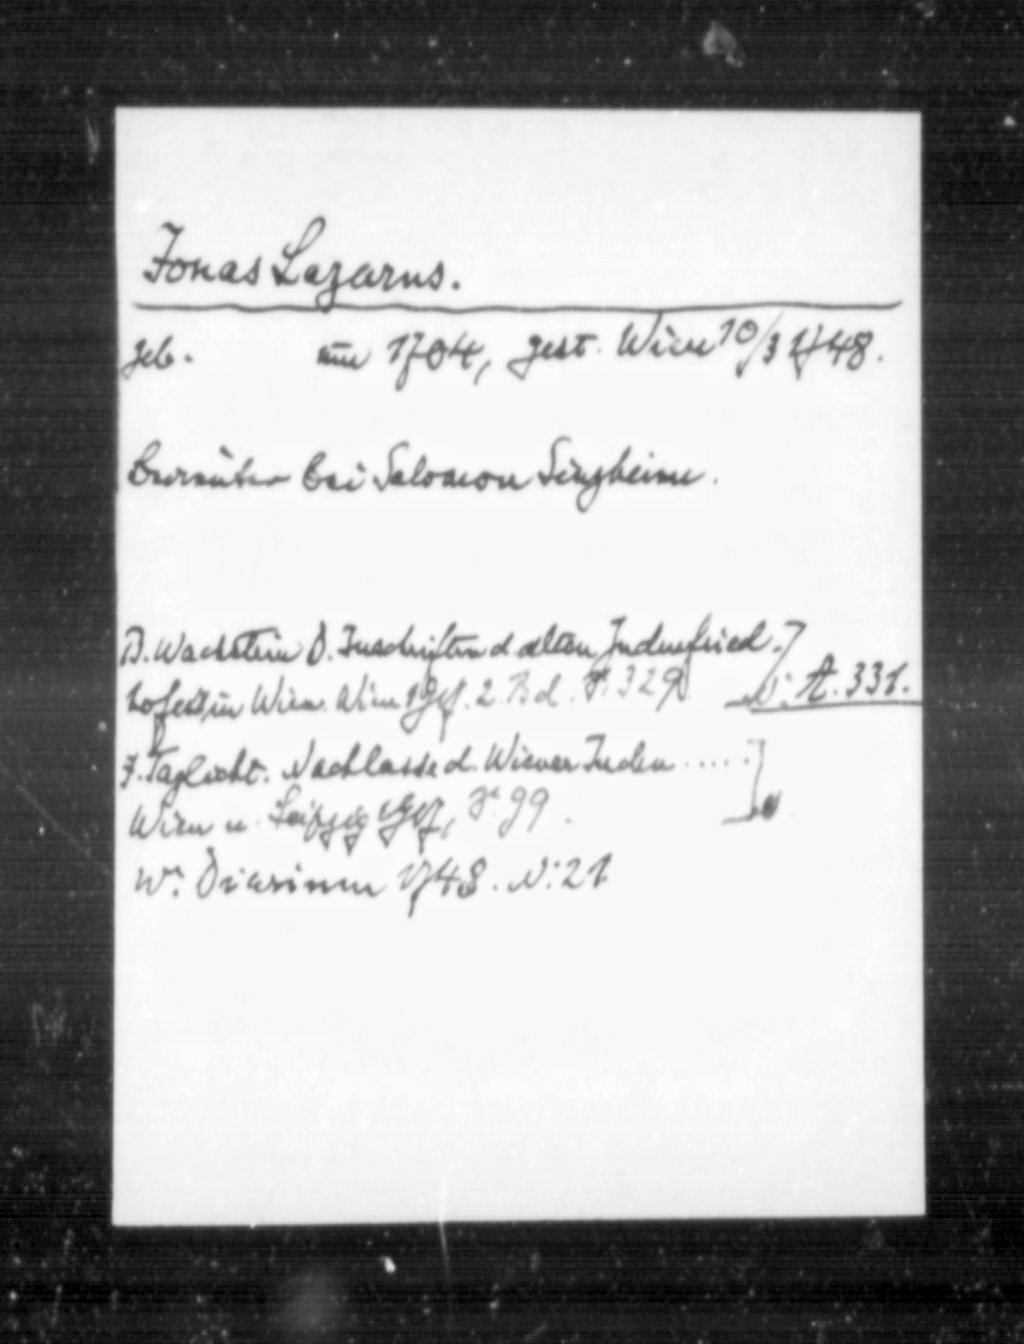 Jonas Lazarus.
geb. um 1704, gest. Wien 10/3 1748.
Beamter bei Salomon Sinzheim.
B. Wachstein D. Inschriften d alten Judenfried-
hofes in Wien. Wien 1917. 2. Bd. S. 329 N: A. 331.
J. Taglicht. Nachlasse d. Wiener Juden .....
Wien u. Leipzig 1917, S. 99.
Wr. Diarium 1748. N: 21